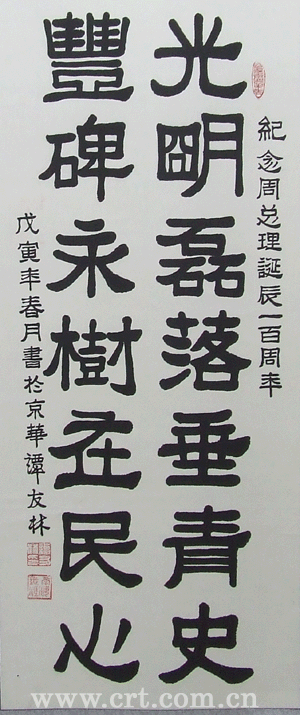 紀念周总理誕辰一百周年
光明磊落垂青史
豐碑永樹在民心
戊寅年春月書於京華譚友林
www.crt.com.cn